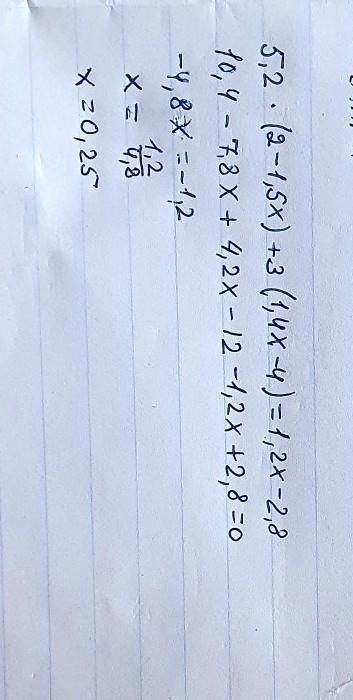 5,2 · (2-1,5x)+3 (1,4x-4)=1,2x-2,8
10,4-7,8x+4,2x-12-1,2x+2,8=0
-4,8x=-1,2
x = 1,2/4,8
x = 0,25